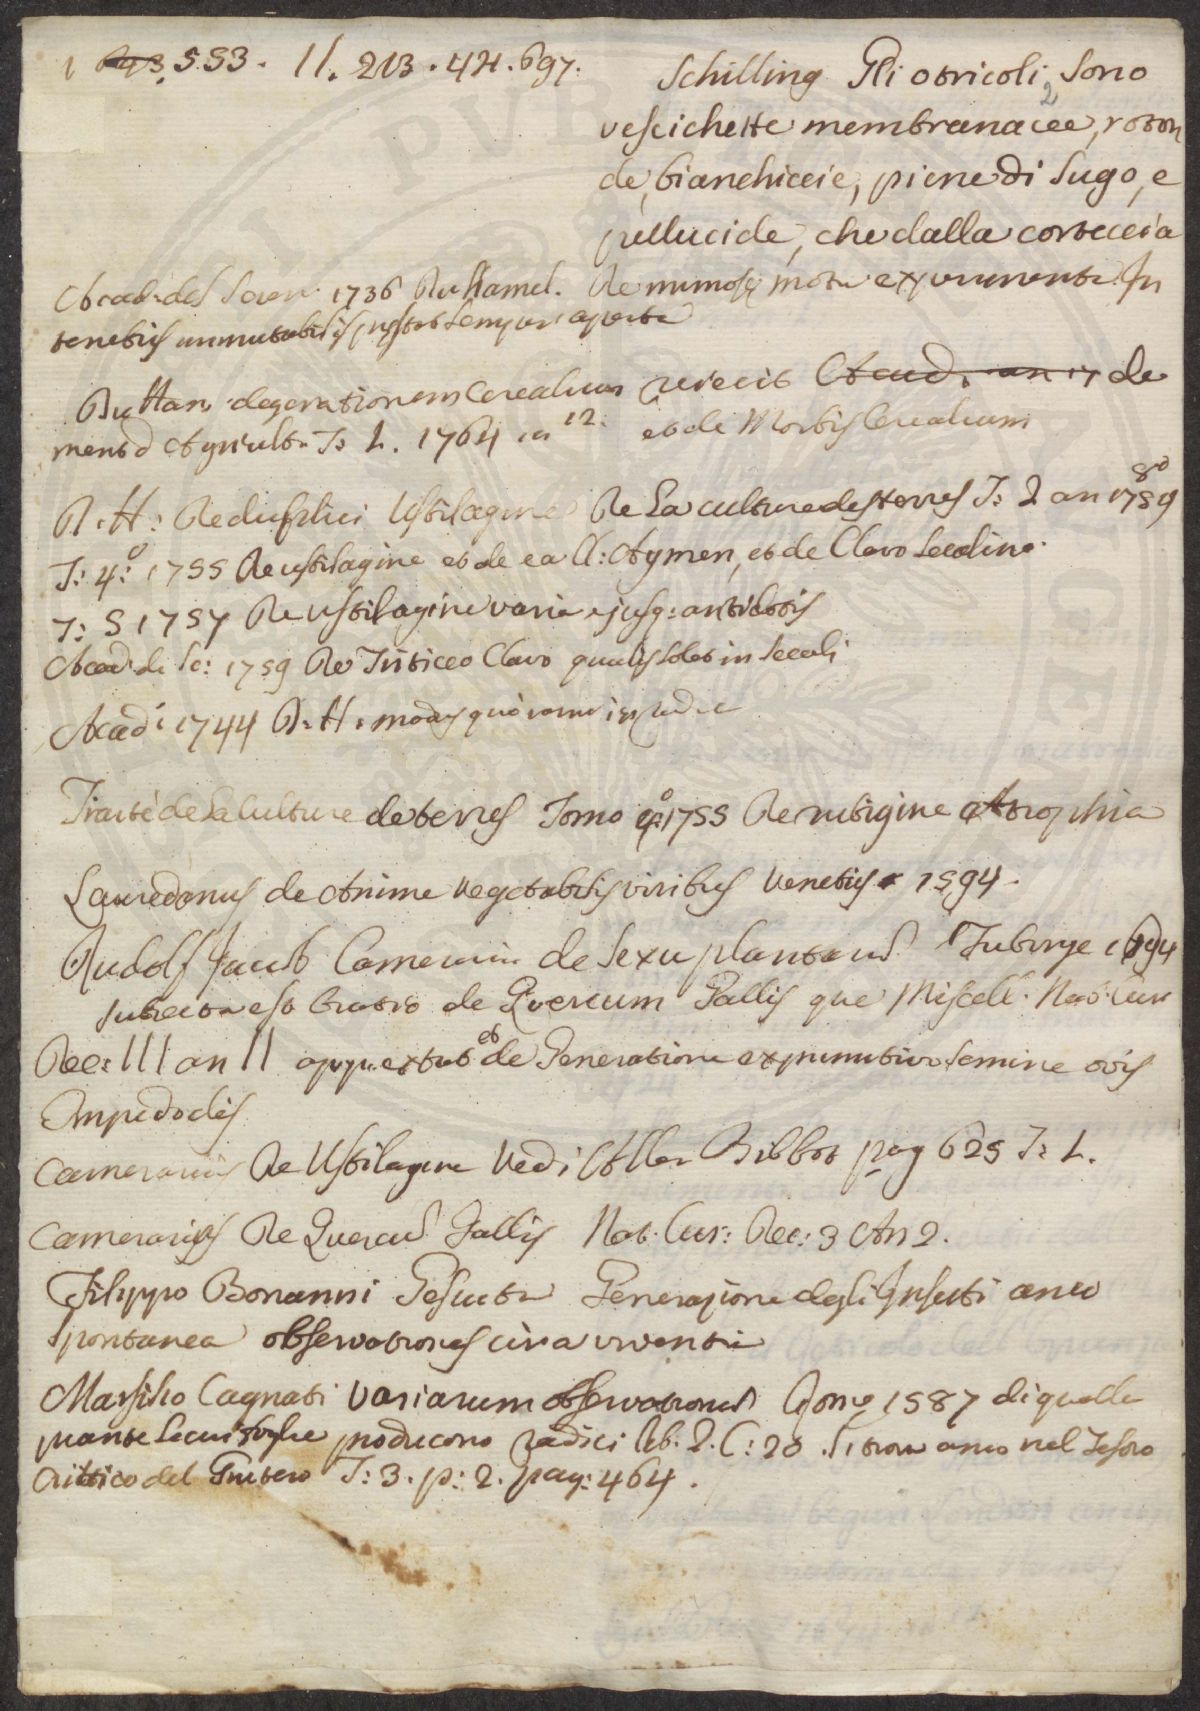 1 693. 553. 11. 213. 421. 697.
Schilling Gli otricoli sono
2
vescichette membranacee, roton
de, bianchiccie, piene di sugo, e
pellucide, che dalla corteccia
Acad. des Scien. 1736 Du Hamel. De mimosę motu experimenta. In
tenebris immutabilis semper aperta
Du Ham. degerationem Cerealium rejecit Acad. an 17 de
mens d'Agricult. T: 1. 1764 in 12. et de Morbis Cerealium
D. H: De duplici Ustilagine De la culture des terres T: 2 an 1759
8°
T: 4:° 1755 De ustilagine et de ea Cl: Aymen, et de Clavo Secalino.
T: 5 1757 De Ustilagine varia ejusq: antidotis
Acad. de Sc: 1759 De Triticeo Clavo qualis solet in Secali
Acad: 1744 D. H. modus quo
Traité de la Culture de terres Tomo 4:° 1755 De rubigine Atrophia
Lauredanus de Anime vegetabilis viribus Venetiis 1594.
Rudolf Jacob Camerarii de sexu plantarum Tubinge 1694
subjecta est oratio de Quercum Gallis que Miscell. Nat. Cur
Dec: III an II extat et de Generatione ex primitivo semine ovis
Empedoclis
Camerarius De Ustilagine Vedi Aller Bibbot pag 625 T: 1.
Camerarius De Quercus Gallis Nat. Cur: Dec: 3 An 2.
Filippo Bonanni Gesuita Generazione degli Insetti anco
spontanea observationes circa viventia
Marsilio Cagnati Variarum observationum Rome 1587 di quelle
piante le cui foglie producono radici lib. 2. C: 20. Si trova anco nel Tesoro
Crittico del Grutero T: 3. p: 2. pag: 464.